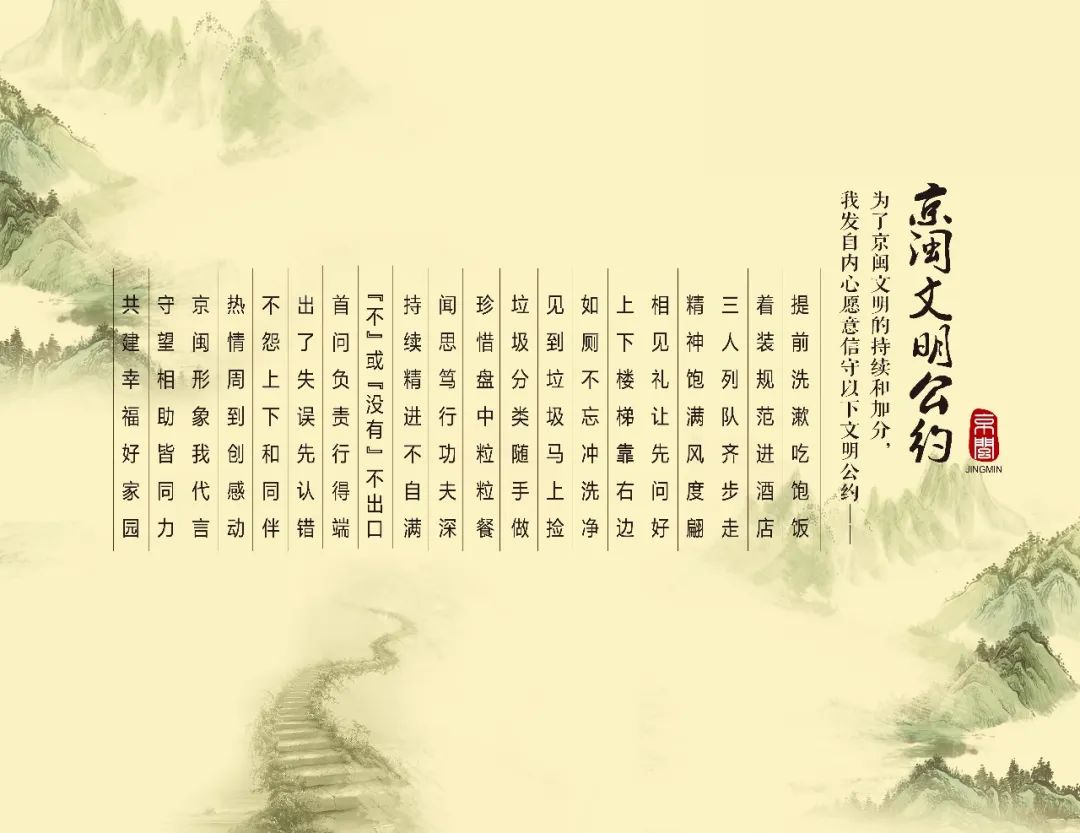 京闽文明公约
京閩
JINGMIN
为了京闽文明的持续和加分，
我发自内心愿意信守以下文明公约——
提前洗漱吃饱饭
着装规范进酒店
三人列队齐步走
精神饱满风度翩
相见礼让先问好
上下楼梯靠右边
如厕不忘冲洗净
见到垃圾马上捡
垃圾分类随手做
珍惜盘中粒粒餐
闻思笃行功夫深
持续精进不自满
『不』或『没有』不出口
首问负责行得端
出了失误先认错
不怨上下和同伴
热情周到创感动
京闽形象我代言
守望相助皆同力
共建幸福好家园